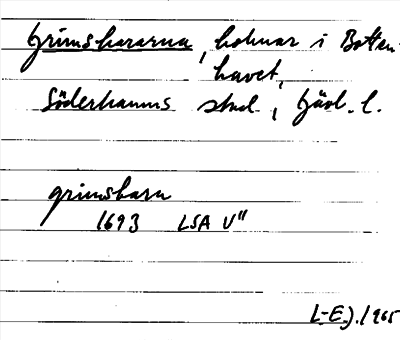 Grimshararna, holmar i Botten-
havet,
Söderhamns stad, Gävl. l.
grimsharu
1693 LSA U"
L-E.J. 1965